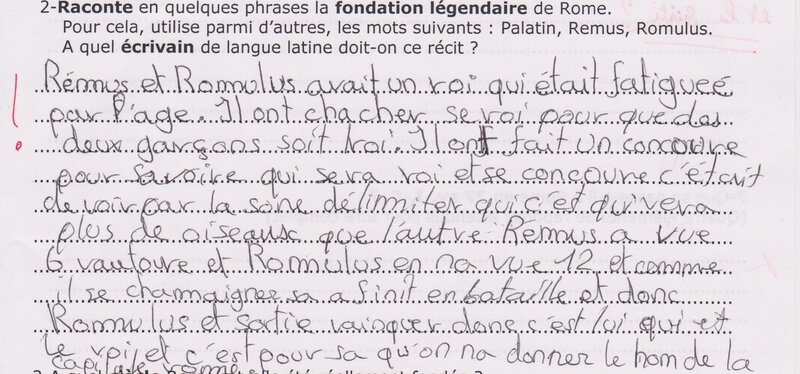 2-Raconte en quelques phrases la fondation légendaire de Rome.
Pour cela, utilise parmi d'autres, les mots suivants : Palatin, Remus, Romulus.
A quel écrivain de langue latine doit-on ce récit ?
Rémus et Romulus avait un roi qui était fatigueé
par l'age. Il ont chacher se roi pour que des
deux garçons soit roi. Il ont fait un concoure
pour savoire qui sera roi et se concoure c'était
de voir par la sone délimiter qui c'et qui vera
plus de oiseaux que l'autre Rémus a vue
6 vautoure et Romulus en na vue 12 et comme
il se chamaigner sa a finit en bataille et donc
Romulus et sortie vainquer donc c'est lui qui et
le roi et c'est pour sa qu'on na donner le nom de la
capitale rome